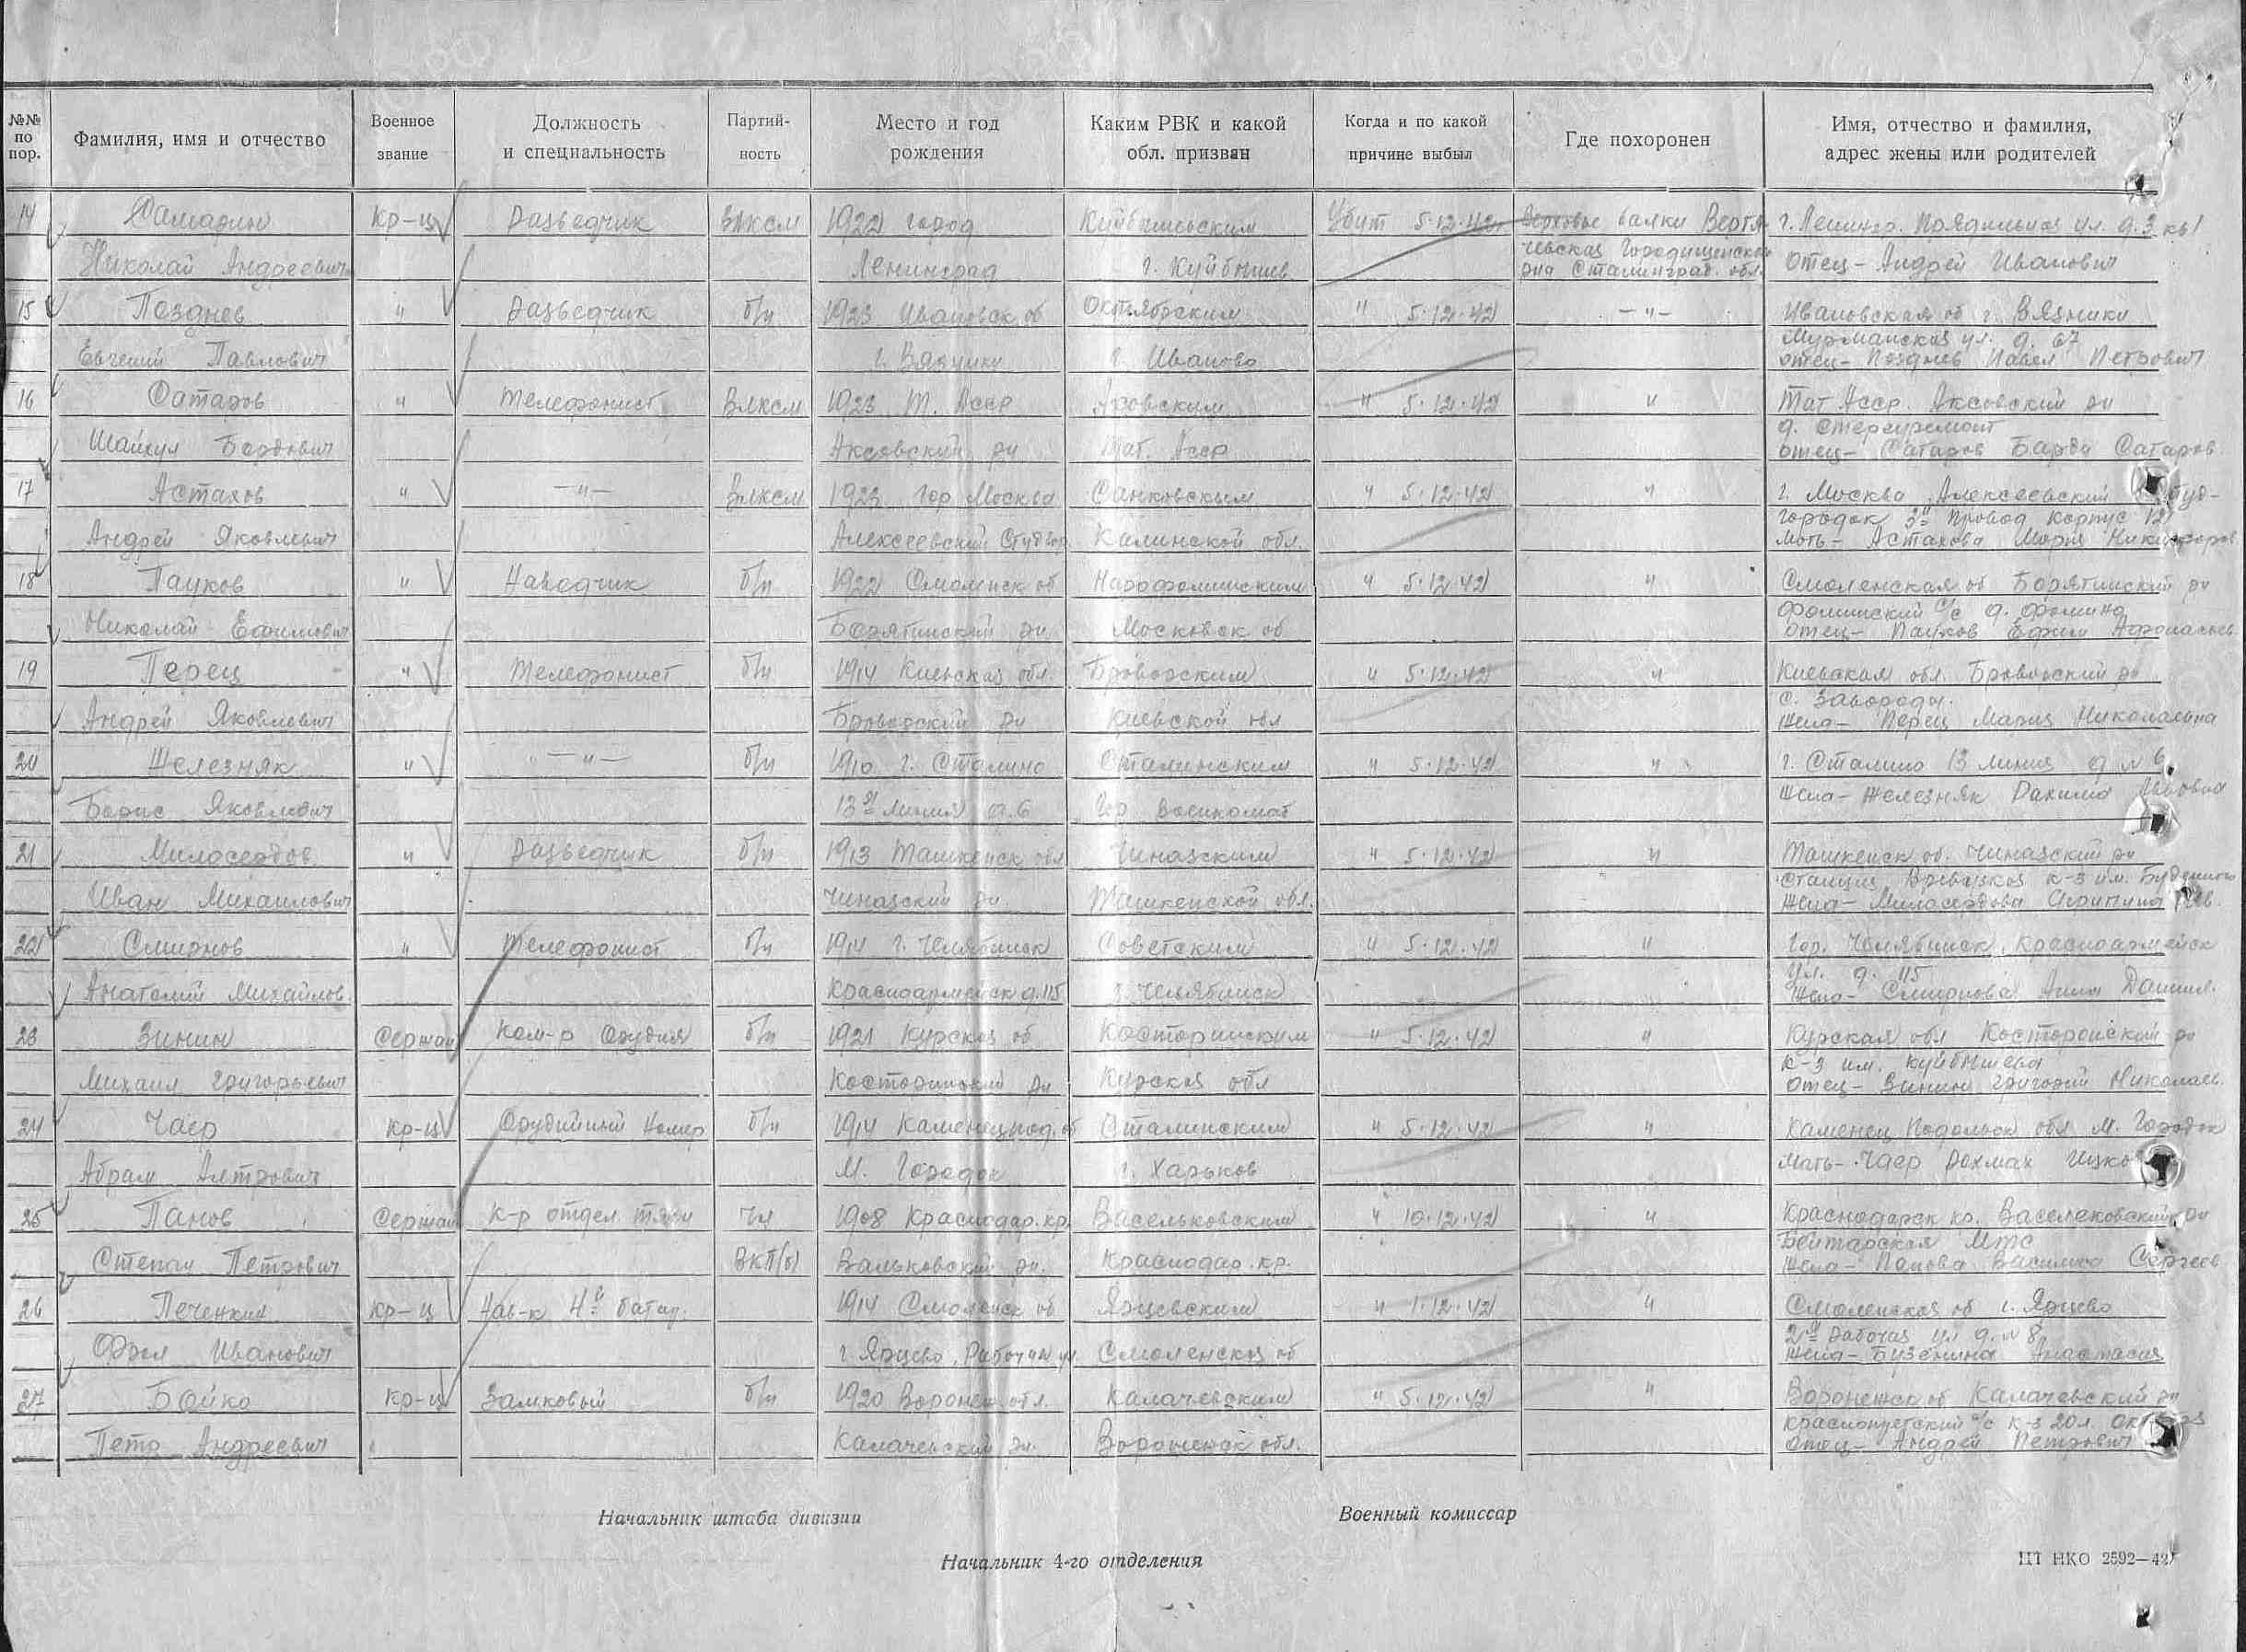 №№ по пор.
Фамилия, имя и отчество
Военное звание
Должность и специальность
Партийность
Место и год рождения
Каким РВК и какой обл. призван
Когда и по какой причине выбыл
Где похоронен
Имя, отчество и фамилия, адрес жены или родителей
14 Самарин кр-ц Разведчик ВЛКСМ 1922 город Куйбышевским Убит 5.12.42 Верховье балки г. Ленингр. Прядильная ул. д. 3 кв 1
Николай Андреевич Ленинград г. Куйбышев Городищенско Сталинград. обл. отец- Андрей Иванович
15 Позднев " Разведчик б/п 1923 Ивановск об Октябрьским " 5.12.42 -"- Ивановская об г. Вязники
Мурманская ул. д. 67
Евгений Павлович г. Вязники г. Иваново отец- Позднев Павел Петрович
16 Сатаров " Телефонист ВЛКСМ 1923 Т. Асср " 5.12.42 " Тат Асср. Аксовский рн
д.
Бардович Аксовский рн Тат. Асср отец- Сатаров Барди Сатаров
17 Астахов " -"- ВЛКСМ 1923 гор Москва Санковским " 5.12.42 " г. Москва Алексеевский
городок 3й провод корпус 12
Андрей Яковлевич Алексеевский Калинской обл. мать- Астахова Мария
18 Пауков " Наводчик б/п 1922 Смоленск об Нарофоминским " 5.12.42 " Смоленская об Борятинский рн
Фоминский с/с д. Фомино
Николай Ефимович Борятинский рн Московск об отец- Пауков Ефим
19 Перец " Телефонист б/п 1914 Киевская обл. Броворским " 5.12.42 " Киевская обл. Броворский рн
с.
Андрей Яковлевич Броворский рн Киевской обл жена- Перец Мария Николаевна
20 Железняк " -"- б/п 1910 г. Сталино Сталинским " 5.12.42 " г. Сталино 13 линия д № 6
Борис Яковлевич 13я линия д. 6 гор военкомат жена- Железняк Рахиль Львовна
21 Милосердов " Разведчик б/п 1913 Ташкенск обл Чиназским " 5.12.42 " Ташкенск об. Чиназский рн
станция к-з им. Буденного
Иван Михаилович Чиназский рн. Ташкенской обл. жена- Милосердова
22 Смирнов " Телефонист б/п 1914 г. Челябинск Советским " 5.12.42 " Гор. Челябинск. Красноармейск
ул. д. 115
Анатолий Михайлов. Красноармейск д. 115 г. Челябинск жена- Смирнова Анна Данил.
23 Зинин Сержан Ком-р Орудия б/п 1921 Курская об Косторинским " 5.12.42 " Курская обл
к-з им. Куйбышева
Михаил Григорьевич Косторинский рн Курская обл отец- Зинин Григорий Николаев.
24 Чаер кр-ц Орудийный номер б/п 1914 Сталинским " 5.12.42 " Каменец Подольск обл м. Городок
Абрам м. Городок г. Харьков мать- Чаер
25 Панов Сержан к-р отдел тяги чл 1908 Краснодар. кр. Васельковским " 10.12.42 " Краснодарск кр. рн
Мтс
Степан Петрович ВКП(б) рн. Краснодар. кр. жена- Панова Василиса Сергеев
26 Печенкин кр-ц Нав-к 4й батар. 1914 Смоленск об Ярцевским " 1.12.42 " Смоленская об г. Ярцево
2я Рабочая ул д. № 8
Иванович г. Ярцево, Рабочая ул Смоленская об жена- Анастасия
27 Бойко кр-ц Замковый б/п 1920 Воронеж. обл. Калачевским " 5.12.42 " Воронежск об Калачевский рн
с/с к-з 20 л.
Петр Андреевич Калачевский рн. Воронежск обл. отец- Андрей Петрович
Начальник штаба дивизии
Военный комиссар
Начальник 4-го отделения
ЦТ НКО 2592—42